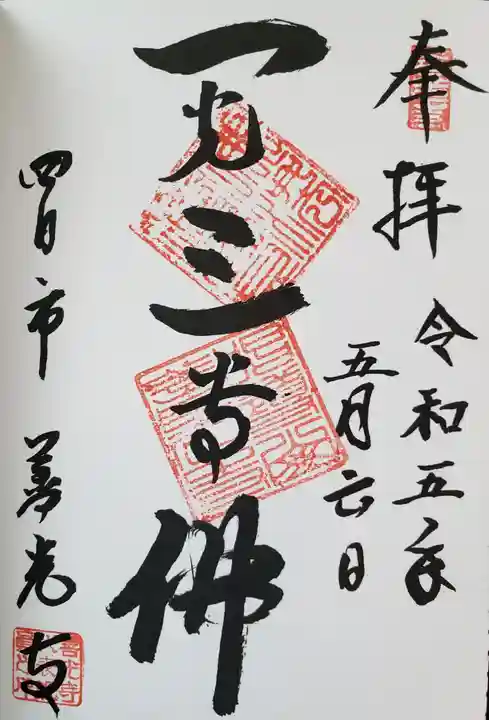 奉拝
令和五年
五月六日
一光三尊佛
四日市 善光寺